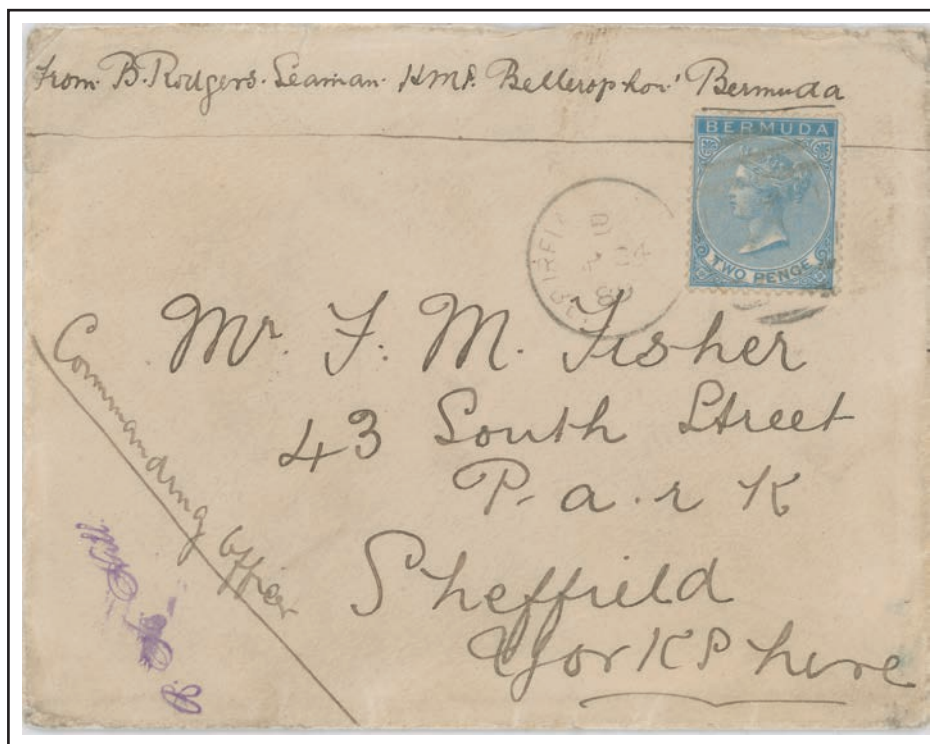 From B. Rodgers. Seaman. HMS. Bellerophon' Bermuda
BERMUDA
TWO PENCE
Mr. F. M. Fisher
43 South Street
P. a. r K
Sheffield
YorKshire
Commanding Officer